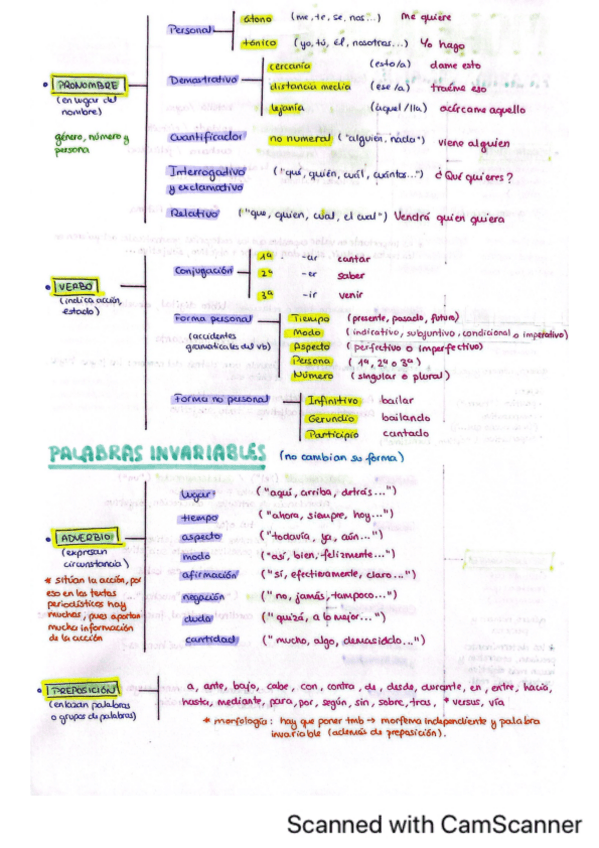 Personal
átono (me, te, se, nos...) me quiere
tónico (yo, tú, él, nosotras...) Yo hago
• PRONOMBRE
(en lugar del
nombre)
género, número y
persona
Demostrativo
cercanía (esto/a) dame esto
distancia media (ese/a) traéme eso
lejanía (aquel/lla) acércame aquello
Cuantificador no numeral ("alguien, nada") viene alguien
Interrogativo
y exclamativo
("qué, quién, cuál, cuántos...") ¿Qué quieres?
Relativo ("que, quien, cual, el cual") Vendrá quien quiera
• VERBO
(indica acción,
estado)
Conjugación
1ª -ar cantar
2ª -er saber
3ª -ir venir
Forma personal
(accidentes
gramaticales del vb)
Tiempo (presente, pasado, futuro)
Modo (indicativo, subjuntivo, condicional o imperativo)
Aspecto (perfectivo o imperfectivo)
Persona (1ª, 2ª o 3ª)
Número (singular o plural)
Forma no personal
Infinitivo bailar
Gerundio bailando
Participio cantado
PALABRAS INVARIABLES (no cambian su forma)
• ADVERBIO
(expresan
circunstancia)
* sitúan la acción, por
eso en los textos
periodísticos hay
muchos, pues aportan
mucha información
de la acción
lugar ("aquí, arriba, detrás...")
tiempo ("ahora, siempre, hoy...")
aspecto ("todavía, ya, aún...")
modo ("así, bien, felizmente...")
afirmación ("sí, efectivamente, claro...")
negación ("no, jamás, tampoco...")
duda ("quizá, a lo mejor...")
cantidad ("mucho, algo, demasiado...")
• PREPOSICIÓN
(enlazan palabras
o grupos de palabras)
a, ante, bajo, cabe, con, contra, de, desde, durante, en, entre, hacia,
hasta, mediante, para, por, según, sin, sobre, tras, * versus, vía
* morfología: hay que poner tmb → morfema independiente y palabra
invariable (además de preposición).
Scanned with CamScanner